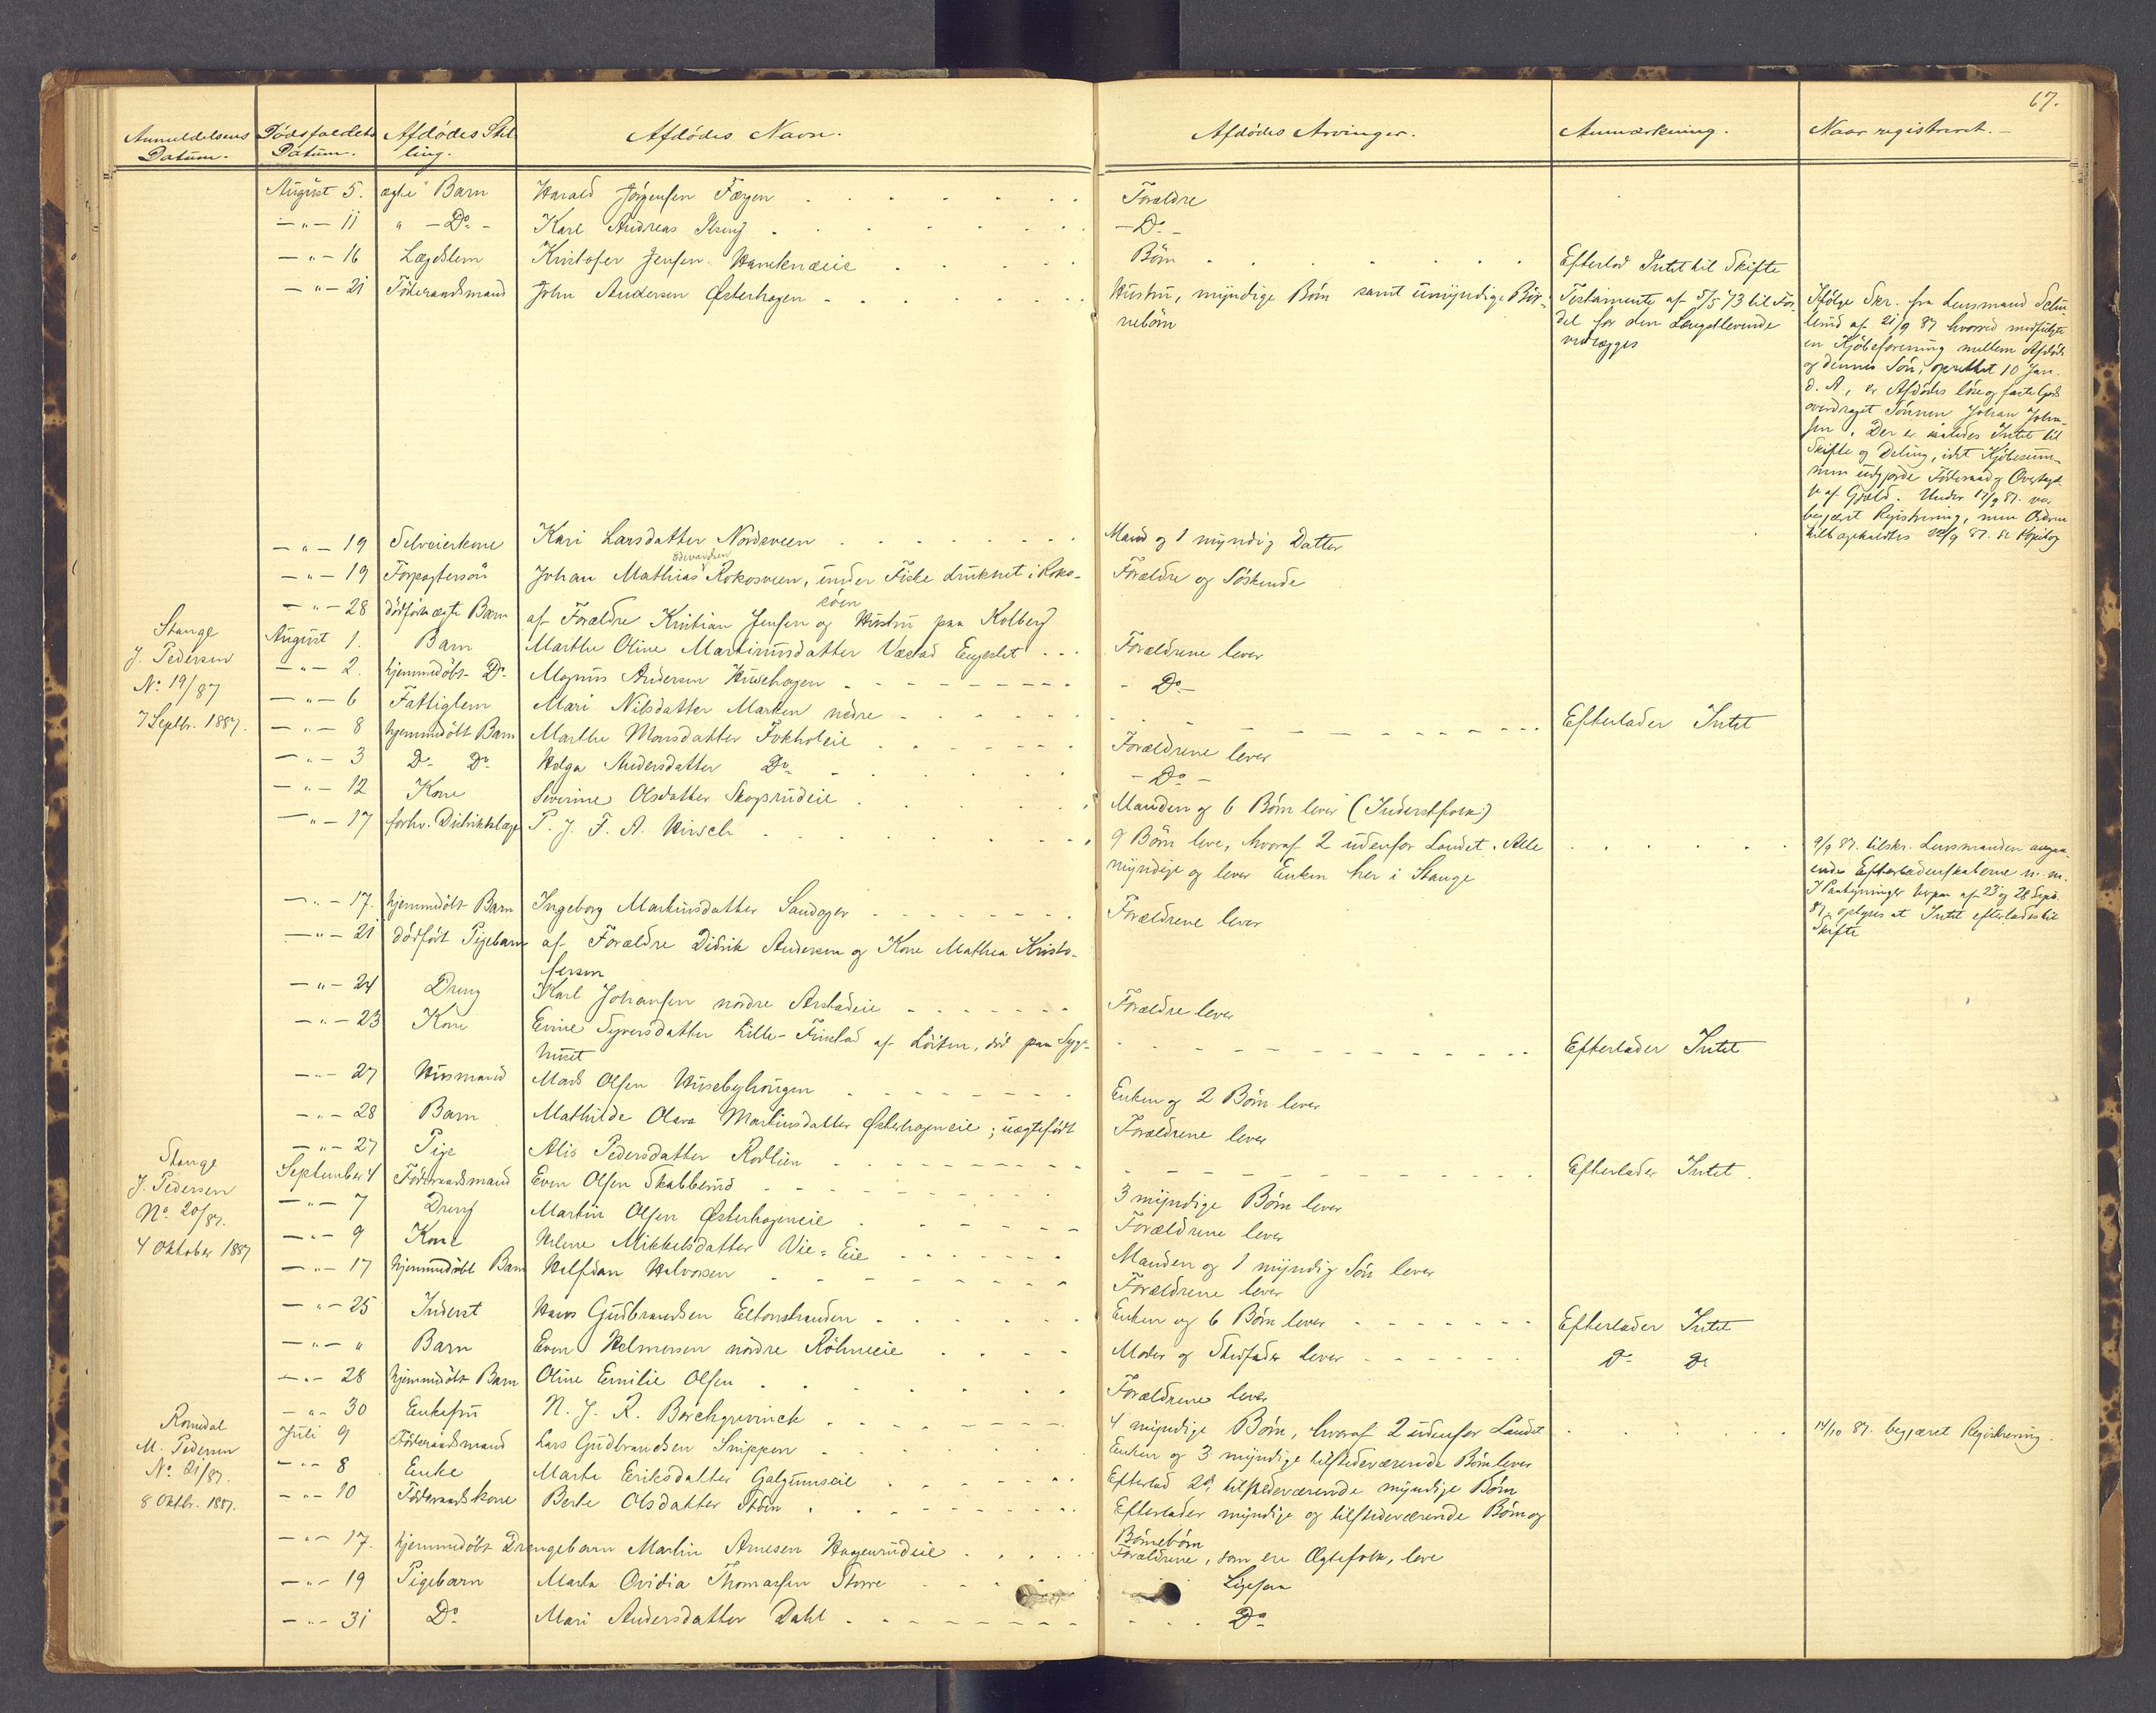 67.
Anmeldelsens Datum. Dødsfaldets Datum. Afdødes Stilling. Afdødes Navn. Afdødes Arvinger. Anmærkning. Naar registreret.
August 5. ægte Barn Harald Jørgensen Færgen Forældre
— " — 11 " — Do — Karl Andreas — Do —
— " — 16 Lægdslem Kristofer Jensen Børn Efterlod Intet til Skifte
— " — 21 Föderaadsmand John Andersen Østerhagen Hustru, myndige Børn samt umyndige Bør- Testamente af 5/5 73 til For- Ifølge Skr. fra Lensmand
nebørn del for den Længstlevende af 21/9 87 hvorved medfulgte
vedlægges en Kjøbeforening mellem Afdøde
og dennes Søn, oprettet 10 Jan.
d. A., er Afdødes løse og faste Gods
overdraget Sønnen Johan John-
sen. Der er saaledes Intet til
Skifte og Deling, idet Kjøbesum-
men udgjorde Föderaad og Overtagel-
se af Gjæld. Under 17/9 87. var
begjært Registrering, men Ordren
— " — 19 Selveierkone Kari Larsdatter Nordsveen Mand og 1 myndig Datter tilbagekaldtes 22/9 87.
Edvardsen
— " — 19 Forpagtersøn Johan Mathias Rokosveen, under Fiske druknet i Roko- Forældre og Søskende
søen
— " — 28 dødfødt ægte Barn af Forældre Kristian Jensen og Hustru paa Kolberg
Stange August 1. Barn Marthe Oline Martinusdatter Vestad Engeslet Forældrene lever
J. Pedersen — " — 2. hjemmedøbt Do Magnus Andersen Husehagen — Do —
No 19/87 — " — 6 Fattiglem Mari Nilsdatter Marken nedre Efterlader Intet
7 Septbr. 1887. — " — 8 hjemmedøbt Barn Marthe Monsdatter Fokholeie Forældrene lever
— " — 3 Do Do Helga Andersdatter Do — Do —
— " — 12 Kone Severine Olsdatter Skogsrudeie Manden og 6 Børn lever (Inderstfolk)
— " — 17 forhv. Distriktslæge P. J. F. A. Hirsch 9 Børn leve, hvoraf 2 udenfor Landet. Alle 9/9 87. tilskr. Lensmanden angaa-
myndige og lever Enken her i Stange ende Efterladenskaberne m. m.
I Paategninger herpaa af 23 og 28 Sept.
— " — 17. hjemmedøbt Barn Ingeborg Martinsdatter Sandager Forældrene lever 87. oplyses at Intet efterlades til
— " — 21 dødfødt Pigebarn af Forældre Didrik Andersen og Kone Mathea Kristo- Skifte
fersen
— " — 24 Dreng Karl Johansen nordre Arstadeie Forældre lever
— " — 23 Kone Evine Syversdatter Lille-Finstad af Løiten, død paa Syge- Efterlader Intet
huset
— " — 27 Husmand Mads Olsen Husebyhaugen Enken og 2 Børn lever
— " — 28 Barn Mathilde Olava Martinsdatter Østerhageneie; uægtefødt Forældrene lever
— " — 27 Pige Alis Pedersdatter Rodlien Efterlader Intet.
Stange September 4 Föderaadsmand Even Olsen Skabberud 3 myndige Børn lever
J. Pedersen — " — 7 Dreng Martin Olsen Østerhageneie Forældrene lever
No 20/87. — " — 9 Kone Helene Mikkelsdatter Vie-Eie Manden og 1 myndig Søn lever
4 Oktober 1887 — " — 17 hjemmedøbt Barn Halfdan Halvorsen Forældrene lever
— " — 25 Inderst Hans Gudbrandsen Eltonstranden Enken og 6 Børn lever Efterlader Intet
— " — " Barn Even Helmersen nordre Röhneeie Moder og Stedfader lever Do Do
— " — 28 hjemmedøbt Barn Oline Emilie Olsen Forældrene lever
— " — 30 Enkefru N. J. R. Borchgrevinck 4 myndige Børn, hvoraf 2 udenfor Landet 14/10 87. begjæret Registrering.
Romedal Juli 9 Föderaadsmand Lars Gudbrandsen Snippen Enken og 3 myndige tilstedeværende Børn lever
M. Pedersen — " — 8 Enke Marte Eriksdatter Galgumseie Efterlod 2 tilstedeværende myndige Børn
No 21/87. — " — 10 Föderaadskone Berte Olsdatter Efterlader myndige og tilstedeværende Børn og
8 Oktbr. 1887. Børnebørn
— " — 17. hjemmedøbt Drengebarn Martin Arnesen Hagerudeie Forældrene, som ere Ægtefolk, leve
— " — 19 Pigebarn Marta Ovidia Thomassen Storre Ligesaa
— " — 31 Do Mari Andersdatter Dahl Do